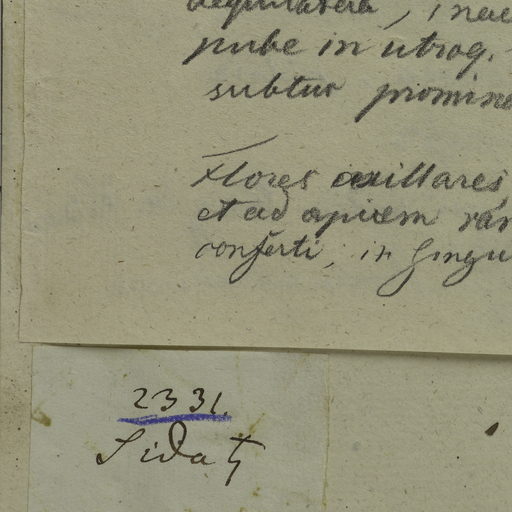 pube in utroq.
subtus promine
Flores axillares,
et ad apicem ram
conferti, in singu
2331.
Sida ♄